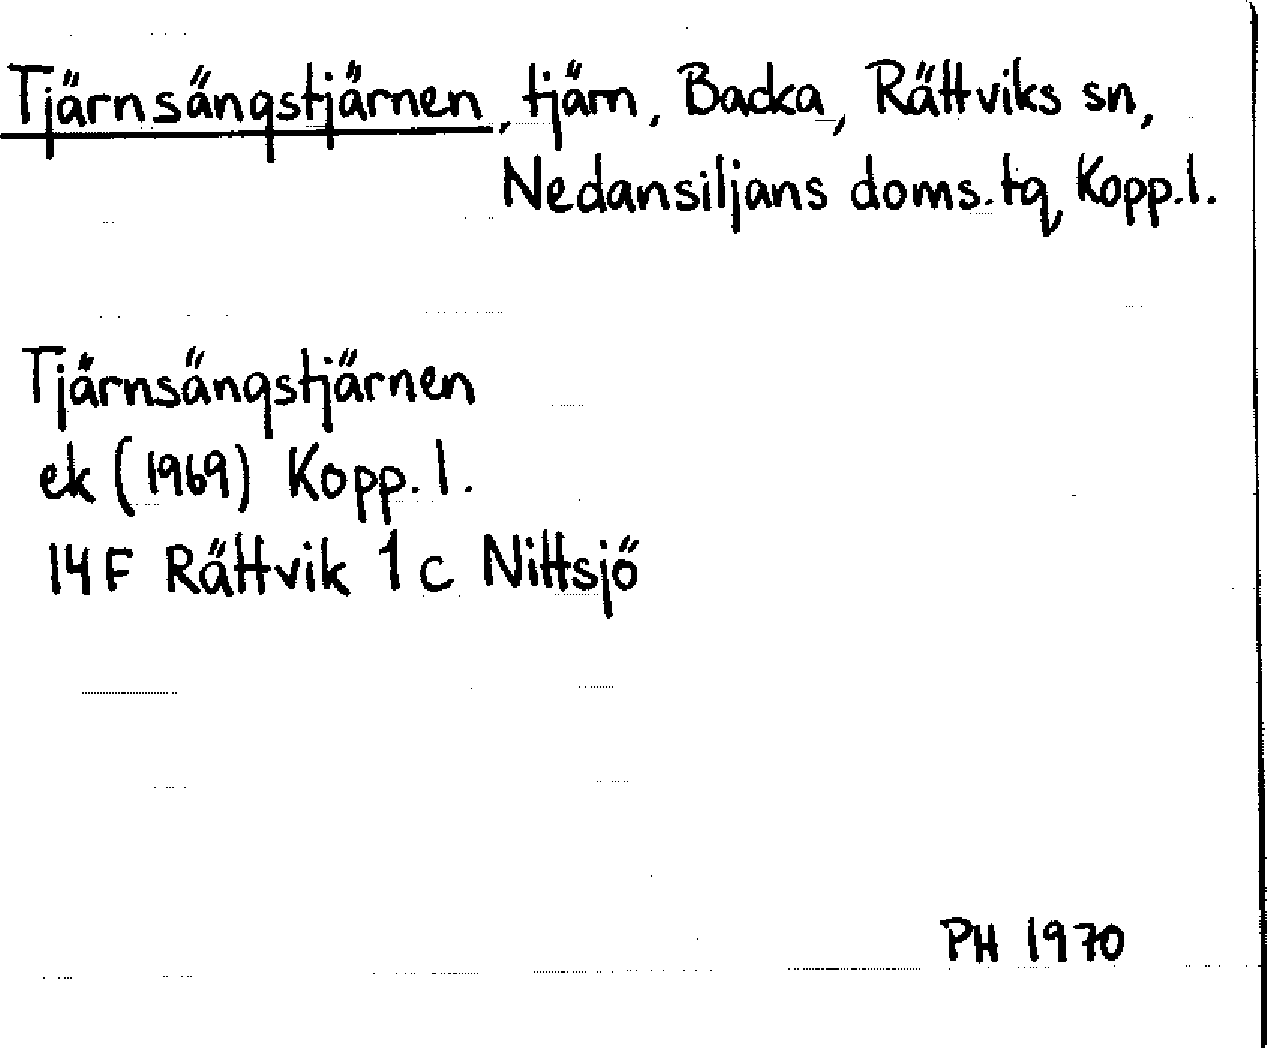 Tjärnsängstjärnen, tjärn, Backa, Rättviks sn,
Nedansiljans doms.tg, Kopp.l.
Tjärnsängstjärnen
ek (1969) Kopp. l.
14 F Rättvik 1 c Nittsjö
PH 1970